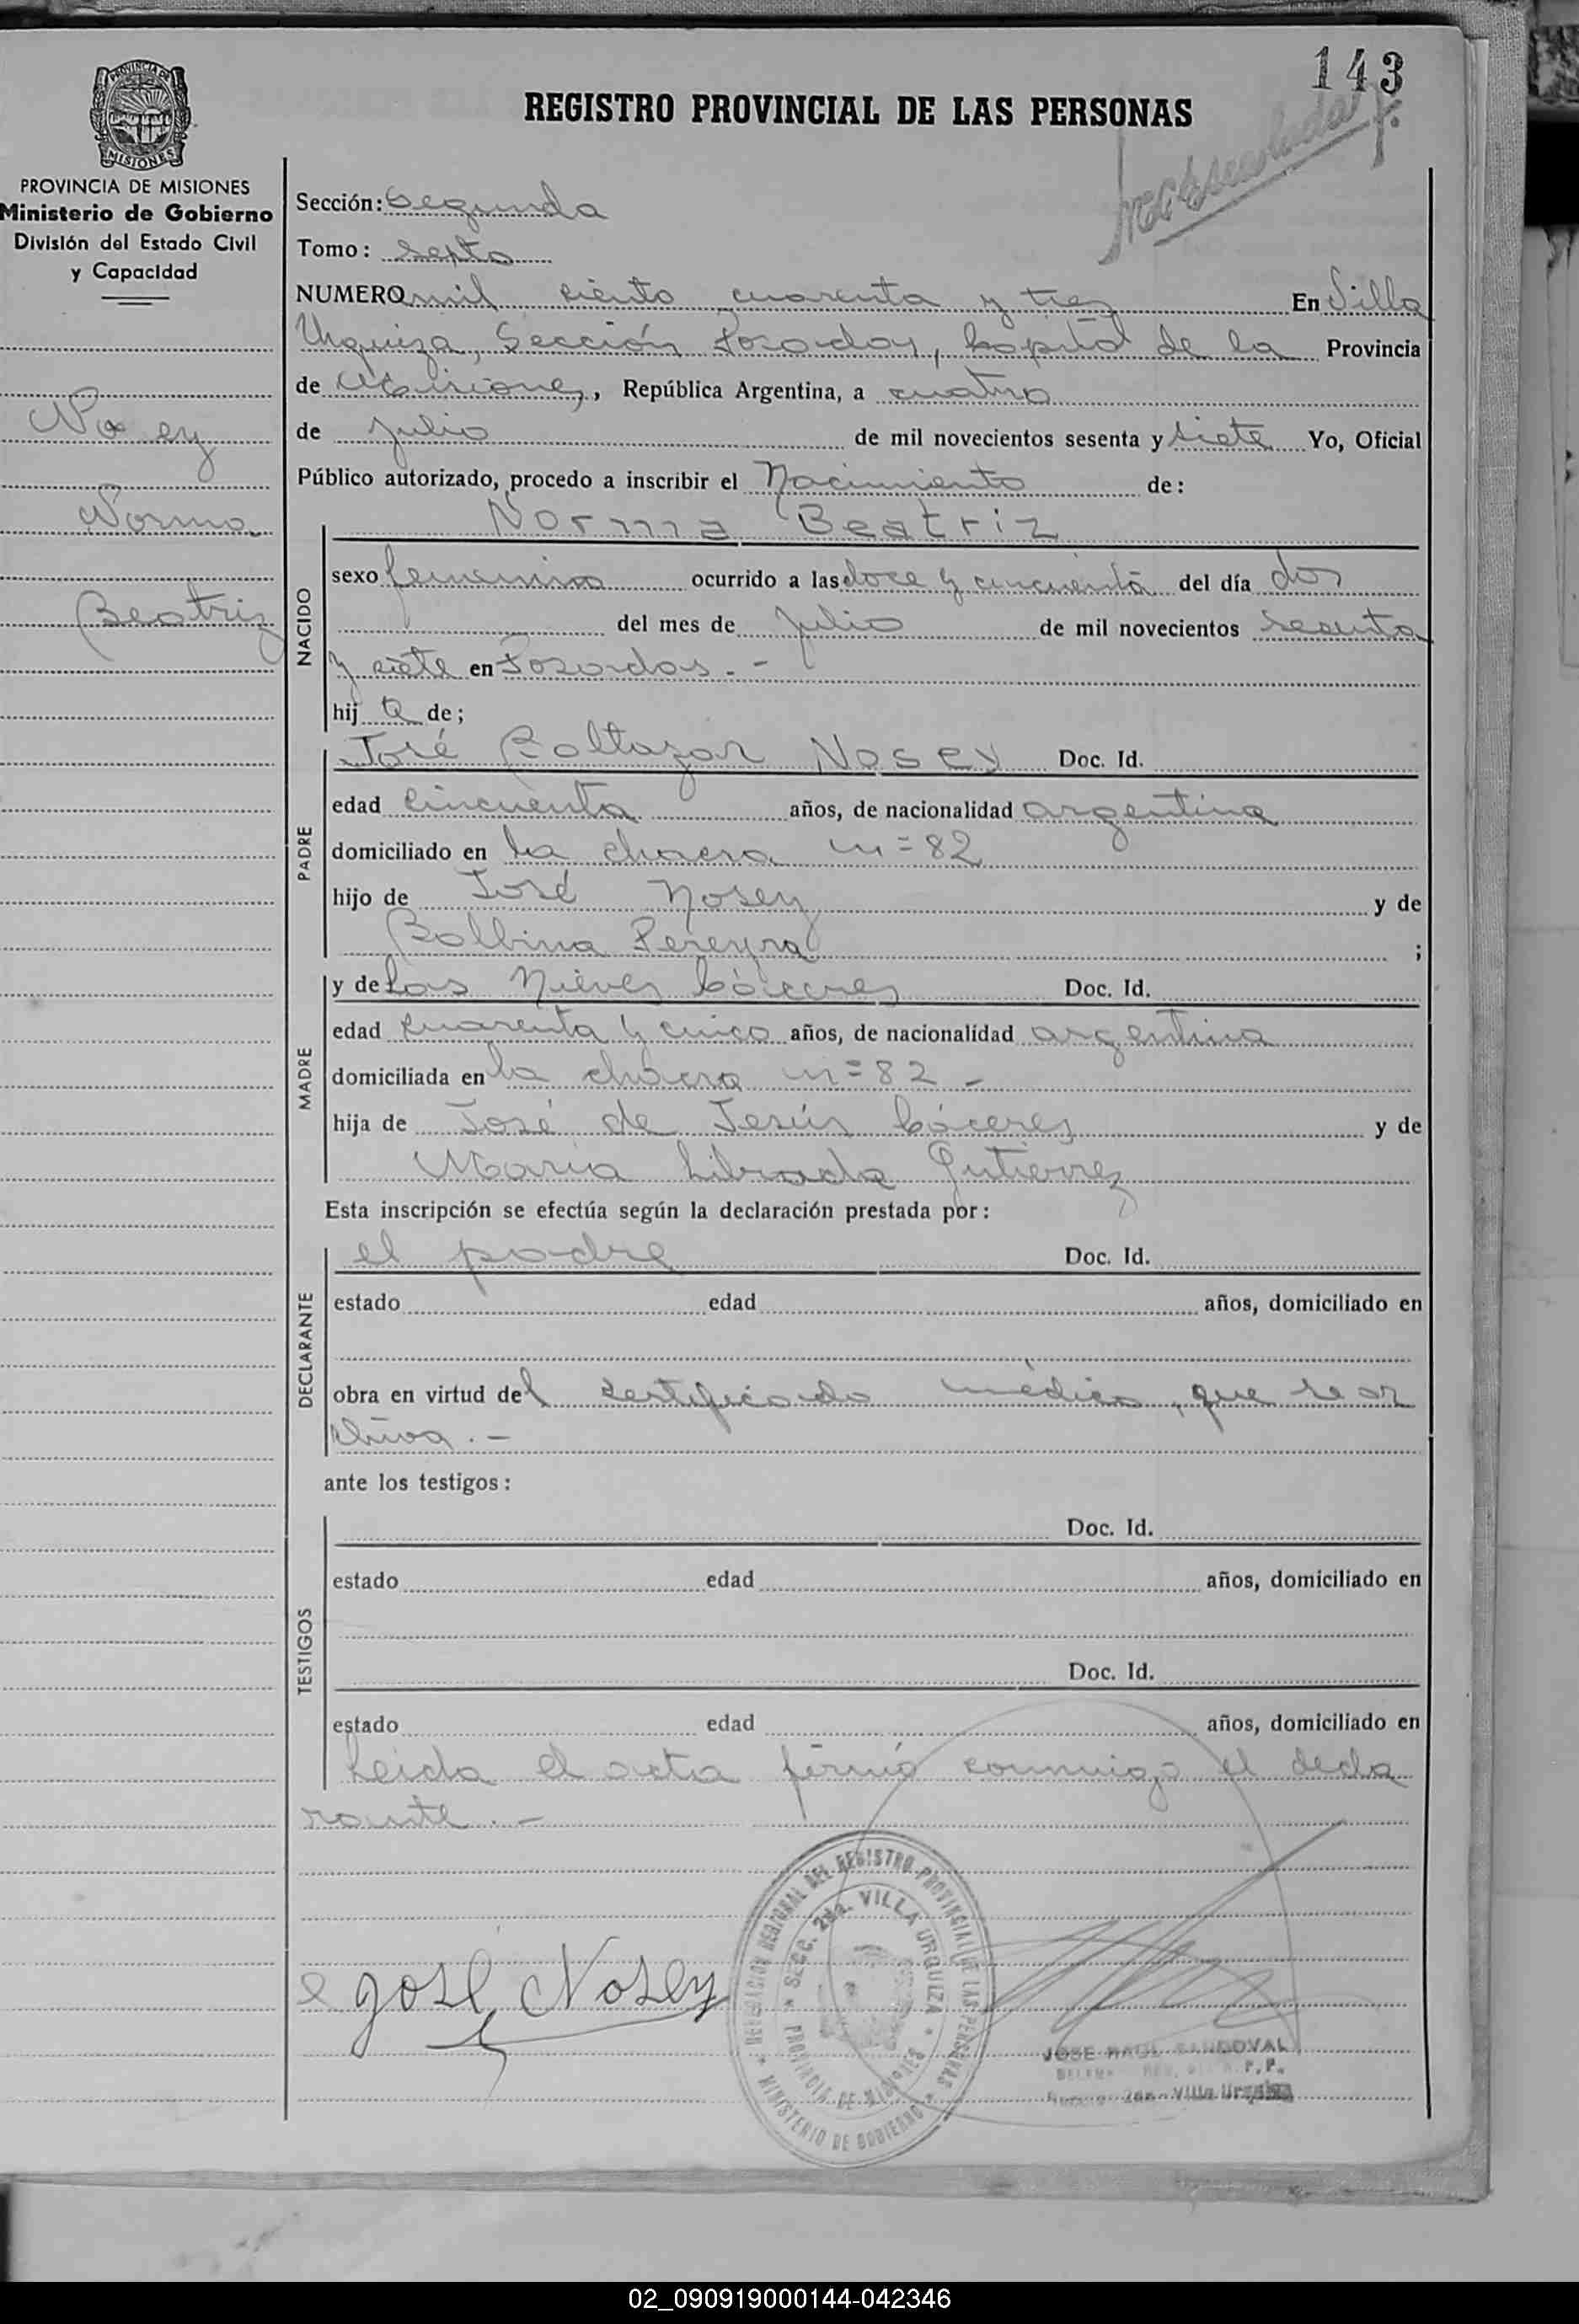 143
REGISTRO PROVINCIAL DE LAS PERSONAS
PROVINCIA DE
MISIONES
PROVINCIA DE MISIONES
Ministerio de Gobierno
División del Estado Civil
y Capacidad
Nosey
Norma
Beatriz
Sección: Segunda
Tomo: septo
NUMERO mil ciento cuarenta y tres En Villa
Urquiza, Sección Posadas, Capital de la Provincia
de Misiones, República Argentina, a cuatro
de julio de mil novecientos sesenta y siete Yo, Oficial
Público autorizado, procedo a inscribir el Nacimiento de:
Norma Beatriz
NACIDO
sexo femenino ocurrido a las doce y cincuenta del día dos
del mes de julio de mil novecientos sesenta
y siete en Posadas.-
hij a de;
José Baltazar Nosey Doc. Id.
PADRE
edad cincuenta años, de nacionalidad argentina
domiciliado en la chacra n=82
hijo de José Nosey y de
Balbina Pereyra ;
y de Las Nieves Cáceres Doc. Id.
MADRE
edad cuarenta y cinco años, de nacionalidad argentina
domiciliada en la chacra n=82 -
hija de José de Jesús Cáceres y de
María Librada Gutierrez
Esta inscripción se efectúa según la declaración prestada por:
el padre Doc. Id.
DECLARANTE
estado edad años, domiciliado en
obra en virtud del certificado médico, que se ar
chiva.-
ante los testigos:
Doc. Id.
TESTIGOS
estado edad años, domiciliado en
Doc. Id.
estado edad años, domiciliado en
Leida el acta firmó conmigo el decla
rante.-
José Nosey
DELEGACION REGIONAL DEL REGISTRO PROVINCIAL DE LAS PERSONAS
MINISTERIO DE GOBIERNO
SECC. 2da. VILLA URQUIZA
PROVINCIA DE MISIONES
JOSE RAUL SANDOVAL
Villa Urquiza
02_090919000144-042346